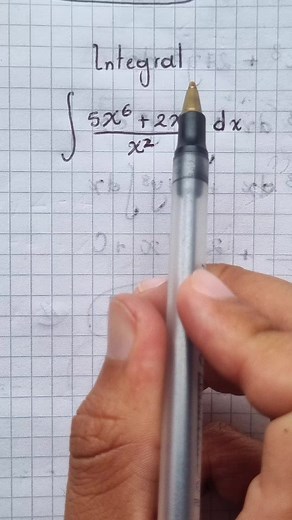 Integral
∫ 5x⁶ + 2x / x² dx